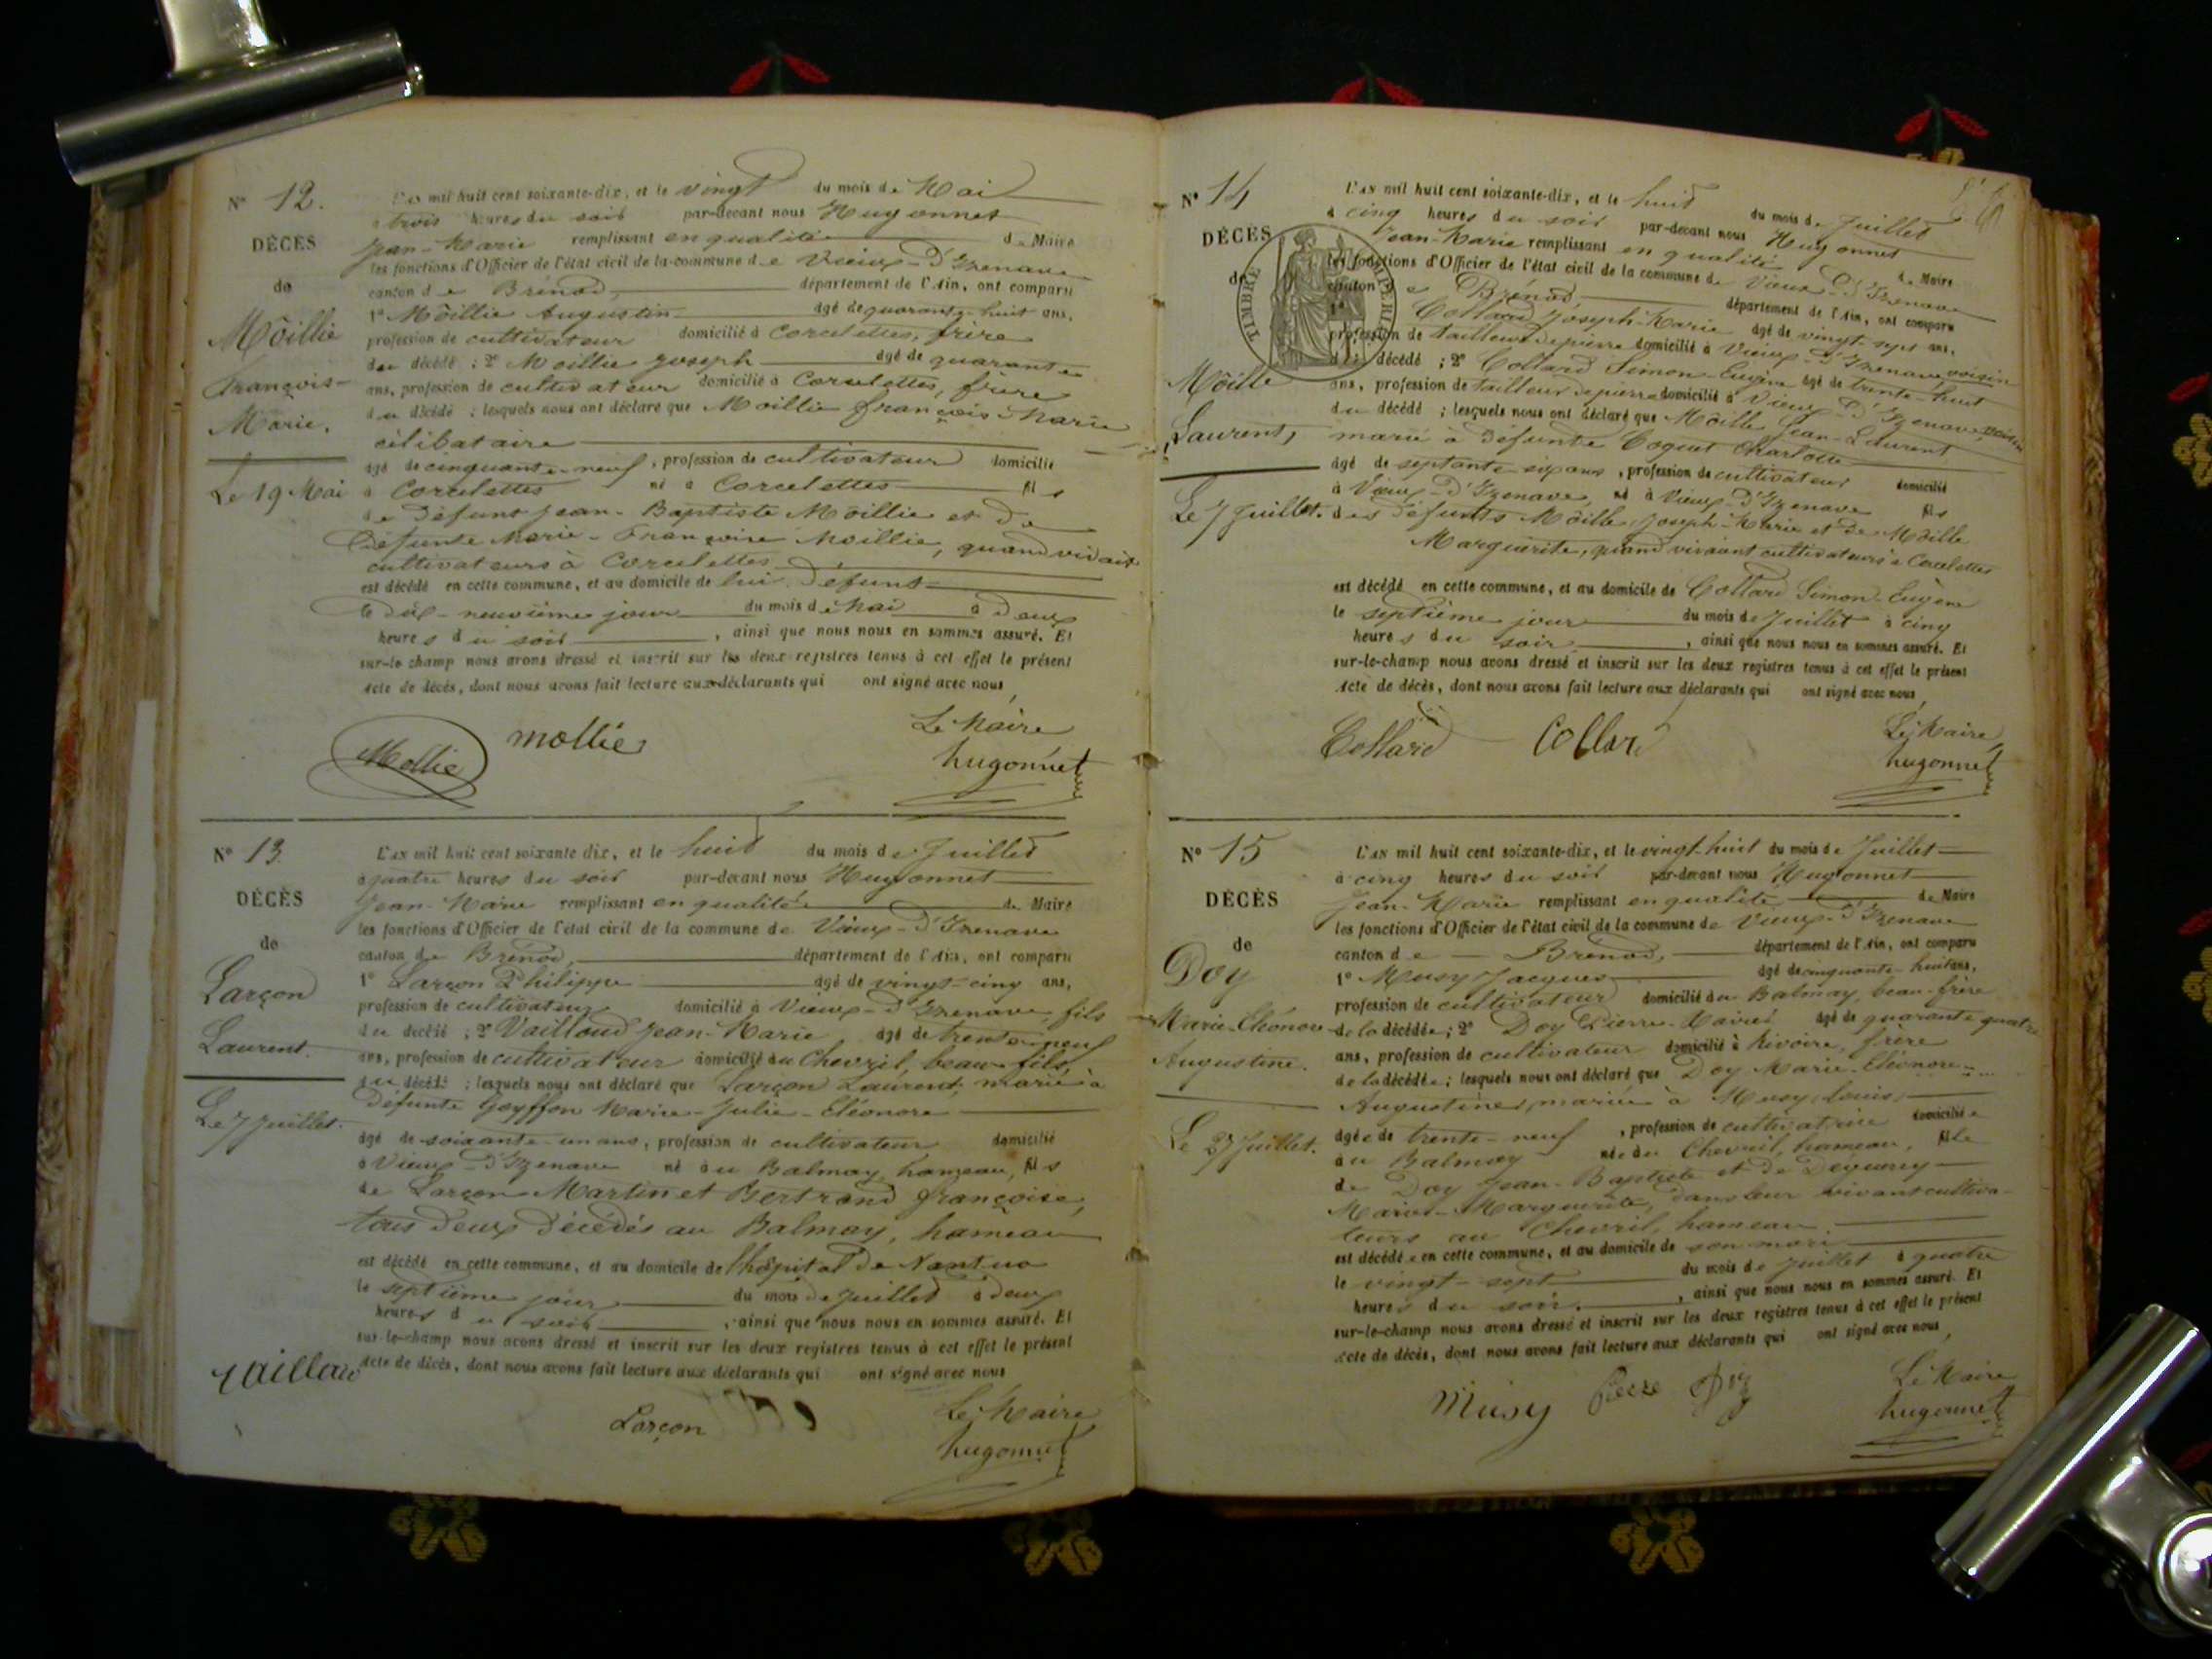 N° 12.
DÉCÈS
de
Môillie
François-
Marie.
Le 19 Mai
L'AN mil huit cent soixante-dix, et le vingt du mois de Mai
à trois heures du soir par-devant nous Hugonnet
Jean-Marie remplissant en qualité de Maire
les fonctions d'Officier de l'état civil de la commune de Vieux-D'Izenave
canton de Brénod, département de l'Ain, ont comparu
1° Môillie Augustin âgé de quarante-huit ans,
profession de cultivateur domicilié à Corcelettes, frère
du décédé ; 2° Moillie Joseph âgé de quarante
ans, profession de cultivateur domicilié à Corcelettes, frère
du décédé ; lesquels nous ont déclaré que Moillie françois Marie
célibataire
âgé de cinquante-neuf, profession de cultivateur domicilié
à Corcelettes né à Corcelettes fils
de Défunt Jean-Baptiste Môillie et De
Défunte Marie-Françoise Moillie, quand vivait
cultivateurs à Corcelettes
est décédé en cette commune, et au domicile de lui Défunt
le dix-neuvième jour du mois de Mai à Deux
heures du soir, ainsi que nous nous en sommes assuré. Et
sur-le-champ nous avons dressé et inscrit sur les deux registres tenus à cet effet le présent
acte de décès, dont nous avons fait lecture aux déclarants qui ont signé avec nous,
Mollie mollie Le Maire
hugonnet
N° 13.
DÉCÈS
de
Larçon
Laurent.
Le 7 Juillet.
L'AN mil huit cent soixante dix, et le huit du mois de Juillet
à quatre heures du soir par-devant nous Hugonnet
Jean-Marie remplissant en qualité de Maire
les fonctions d'Officier de l'état civil de la commune de Vieux-D'Izenave
canton de Brénod, département de l'Ain, ont comparu
1° Larçon Philippe âgé de vingt-cinq ans,
profession de cultivateur domicilié à Vieux-d'Izenave, fils
du décédé ; 2° Vailloud Jean-Marie âgé de trente-neuf
ans, profession de cultivateur domicilié au Chevril, beau-fils,
du décédé ; lesquels nous ont déclaré que Larçon Laurent, marié à
défunte Goyffon Marie-Julie-Eléonore
âgé de soixante-un ans, profession de cultivateur domicilié
à Vieux-D'Izenave né au Balmay, hameau, fils
de Larçon Martin et Bertrand françoise,
tous deux décédés au Balmay, hameau
est décédé en cette commune, et au domicile de l'hôpital de Nantua
le septième jour du mois de Juillet à deux
heures du soir, ainsi que nous nous en sommes assuré. Et
sur-le-champ nous avons dressé et inscrit sur les deux registres tenus à cet effet le présent
acte de décès, dont nous avons fait lecture aux déclarants qui ont signé avec nous
Larçon Le Maire
hugonnet
N° 14
DÉCÈS
de
Môille
Laurent,
Le 7 Juillet.
TIMBRE IMPERIAL
L'AN mil huit cent soixante-dix, et le huit du mois de Juillet
à cinq heures du soir par-devant nous Hugonnet
Jean-Marie remplissant en qualité de Maire
les fonctions d'Officier de l'état civil de la commune de Vieux-D'Izenave
canton de Brénod, département de l'Ain, ont comparu
1° Collard Joseph-Marie âgé de vingt-sept ans,
profession de tailleur de pierre domicilié à Vieux-D'Izenave, voisin
du décédé ; 2° Collard Simon-Eugène âgé de trente-huit
ans, profession de tailleur de pierre domicilié à Vieux-D'Izenave, voisin
du décédé ; lesquels nous ont déclaré que Môille Jean-Laurent
marié à défunte Coquet Charlotte
âgé de septante six ans, profession de cultivateur domicilié
à Vieux-D'Izenave, né à Vieux-D'Izenave fils
des défunts Môille Joseph-Marie et de Môille
Marguerite, quand vivaient cultivateurs à Corcelettes
est décédé en cette commune, et au domicile de Collard Simon-Eugène
le septième jour du mois de Juillet à cinq
heures du soir, ainsi que nous nous en sommes assuré. Et
sur-le-champ nous avons dressé et inscrit sur les deux registres tenus à cet effet le présent
acte de décès, dont nous avons fait lecture aux déclarants qui ont signé avec nous,
Collard Collard Le Maire,
hugonnet
N° 15
DÉCÈS
de
Doy
Marie-Eléonore
Augustine.
Le 27 Juillet.
L'AN mil huit cent soixante-dix, et le vingt-huit du mois de Juillet
à cinq heures du soir par-devant nous Hugonnet
Jean-Marie remplissant en qualité de Maire
les fonctions d'Officier de l'état civil de la commune de Vieux-D'Izenave
canton de Brénod, département de l'Ain, ont comparu
1° Musy Jacques âgé de cinquante-huit ans,
profession de cultivateur domicilié au Balmay, beau-frère
de la décédée ; 2° Doy Pierre-Xavier âgé de quarante quatre
ans, profession de cultivateur domicilié à Rivoire, frère
de la décédée ; lesquels nous ont déclaré que Doy Marie-Eléonore-
Augustine, mariée à Musy Louis,
âgée de trente-neuf, profession de cultivatrice domiciliée
au Balmay née au Chevril, hameau, fille
de Doy Jean-Baptiste et de
Marie-Marguerite, dans leur vivant cultiva-
teurs au Chevril, hameau.
est décédée en cette commune, et au domicile de son mari
le vingt-sept du mois de Juillet à quatre
heures du soir, ainsi que nous nous en sommes assuré. Et
sur-le-champ nous avons dressé et inscrit sur les deux registres tenus à cet effet le présent
acte de décès, dont nous avons fait lecture aux déclarants qui ont signé avec nous,
Musy Pierre Doy Le Maire
hugonnet